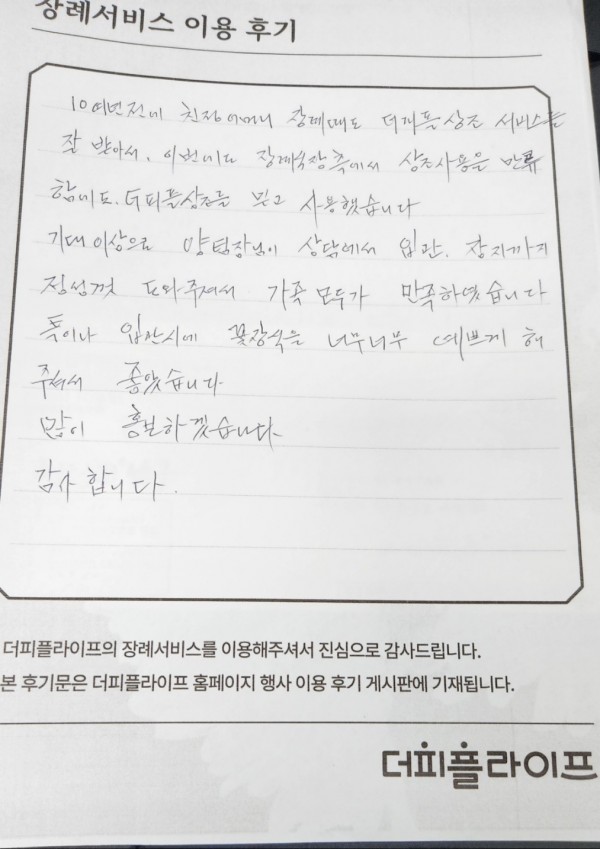 장례서비스 이용 후기
10여년전에 친정어머니 장례때도 더피플상조 서비스를
잘 받아서, 이번에도 장례식장측에서 상조사용을 만류
함에도 더피플상조를 믿고 사용했습니다
기대이상으로 양팀장님이 상담에서 입관, 장지까지
정성껏 도와주셔서 가족모두가 만족하였습니다
특이나 입관시에 꽃장식을 너무너무 예쁘게 해
주셔서 좋았습니다
많이 홍보하겠습니다
감사합니다.
더피플라이프의 장례서비스를 이용해주셔서 진심으로 감사드립니다.
본 후기문은 더피플라이프 홈페이지 행사 이용 후기 게시판에 기재됩니다.
더피플라이프